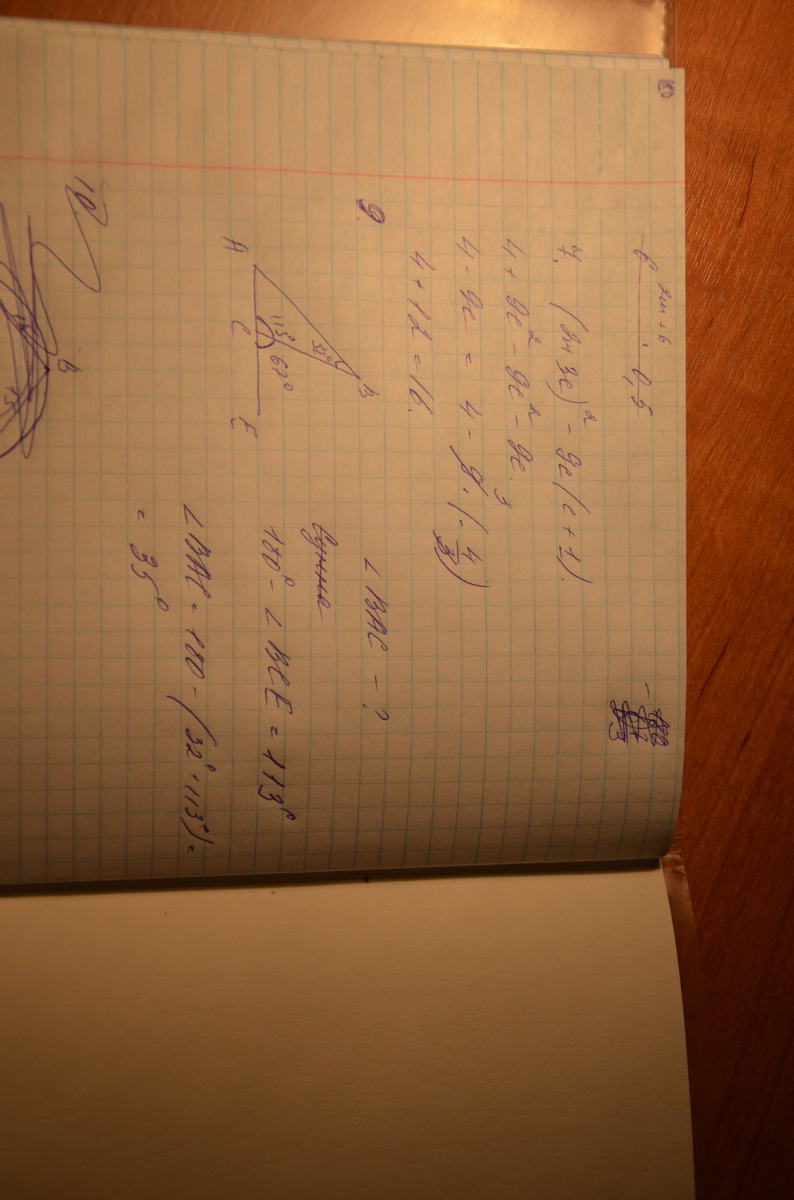 6 2m+6 : 0,5
7. (2+3c)² - 9c(c+1).
4+9c² - 9c² - 9c.
4-9c = 4 - 9³ · (-4/3)
4+12 = 16.
9.
∠BAC - ?
A C E B 113° 32° 67°
180° - ∠BCE = 113°
∠BAC = 180 - (32° + 113°) =
= 35°
10.
B